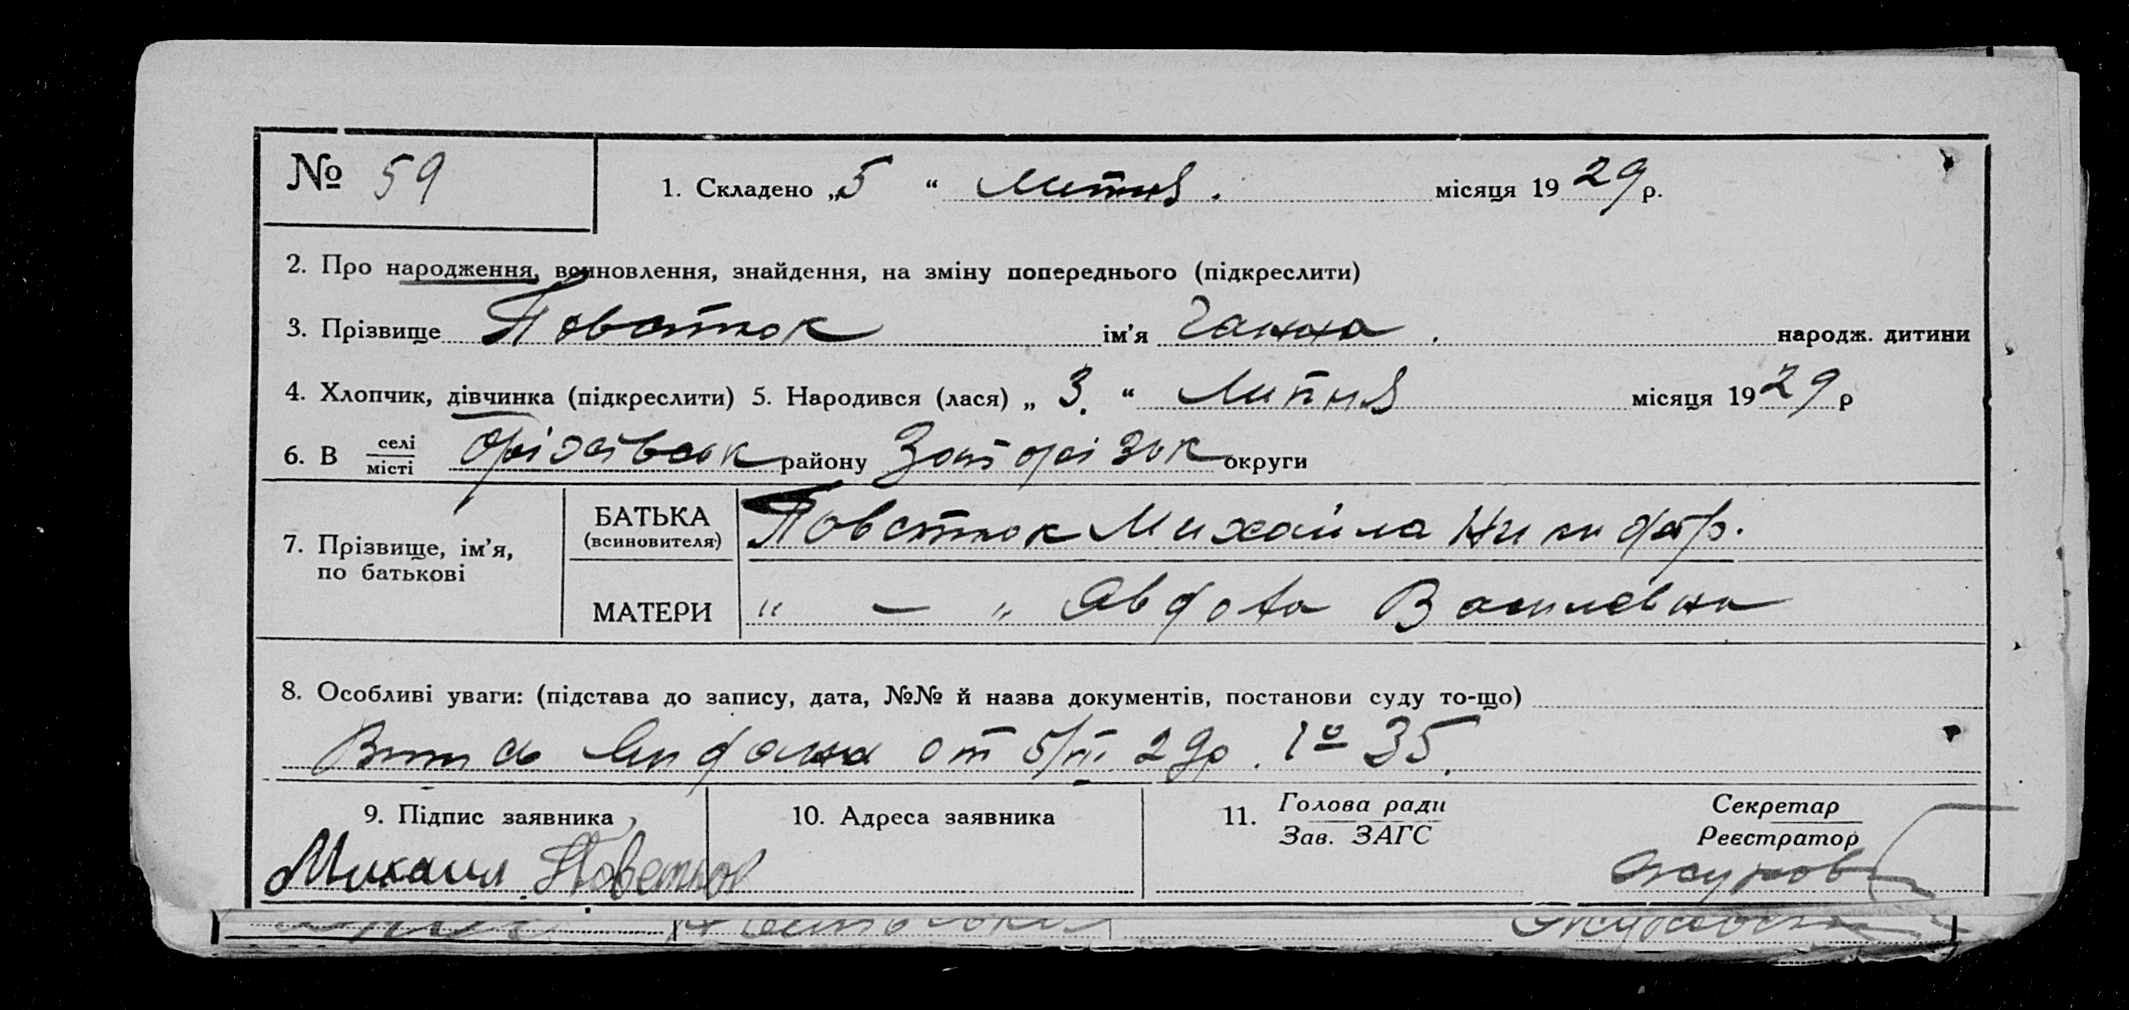 № 59
1. Складено „5“ Липня. місяця 1929 р.
2. Про народження, всиновлення, знайдення, на зміну попереднього (підкреслити)
3. Прізвище Повстюк ім’я Ганна. народж. дитини
4. Хлопчик, дівчинка (підкреслити) 5. Народився (лася) „3.“ Липня місяця 1929 р
6. В селі місті Оріхівськ району Запорізьк округи
7. Прізвище, ім’я, по батькові
БАТЬКА (всиновителя) Повстюк Михайла Никифор.
МАТЕРИ " — " Явдоха Василівна
8. Особливі уваги: (підстава до запису, дата, №№ й назва документів, постанови суду то-що)
от 5/VII 29р. 35.
9. Підпис заявника
10. Адреса заявника
11. Голова ради Зав. ЗАГС
Секретар Реєстратор
Михаил Повстюк